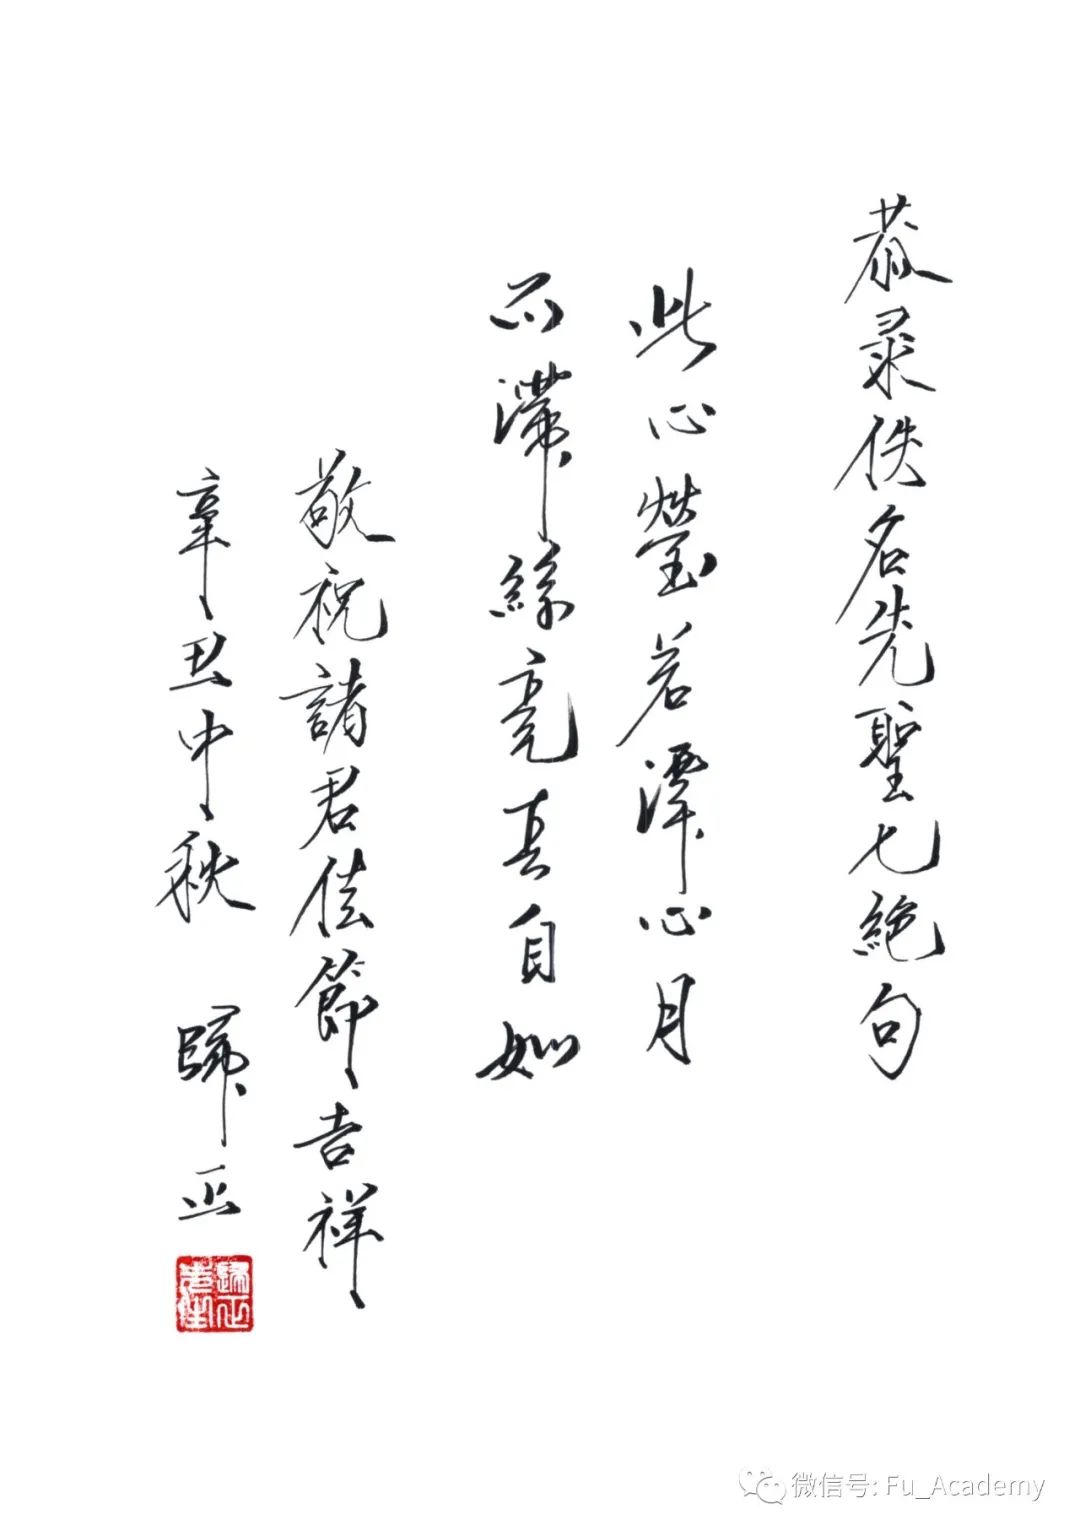 恭录佚名先聖七絶句
此心瑩若潭心月
不滯絲毫真自如
敬祝諸君佳節吉祥
辛丑中秋 歸正
歸正
微信号: Fu_Academy